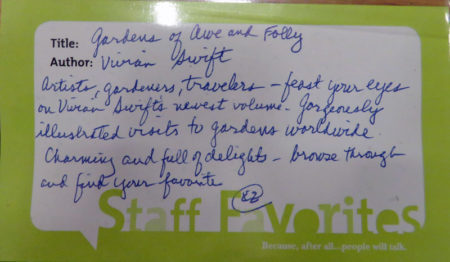 Title: Gardens of Awe and Folly
Author: Vivian Swift
Artists, gardeners, travelers - feast your eyes
on Vivian Swift's newest volume. Gorgeously
illustrated visits to gardens worldwide.
Charming and full of delights - browse through
and find your favorite
Staff Favorites
Because, after all...people will talk.